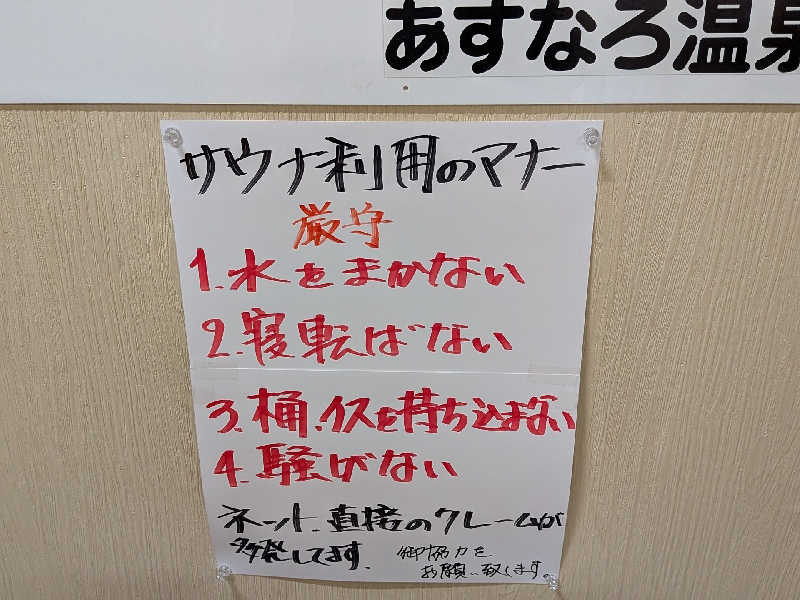 あすなろ温泉
サウナ利用のマナー
厳守
1.水をまかない
2.寝転ばない
3.桶、イスを持ち込まない
4.騒がない
ネット、直接のクレームが
多発してます。
御協力を
お願い致します。